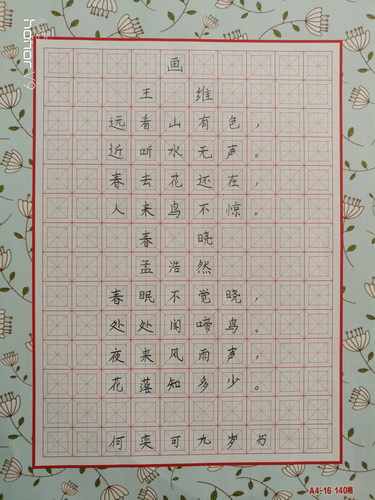 画
王 维
远看山有色，
近听水无声。
春去花还在，
人来鸟不惊。
春 晓
孟浩然
春眠不觉晓，
处处闻啼鸟。
夜来风雨声，
花落知多少。
何奕可九岁书
A4-16 140格
honor V9